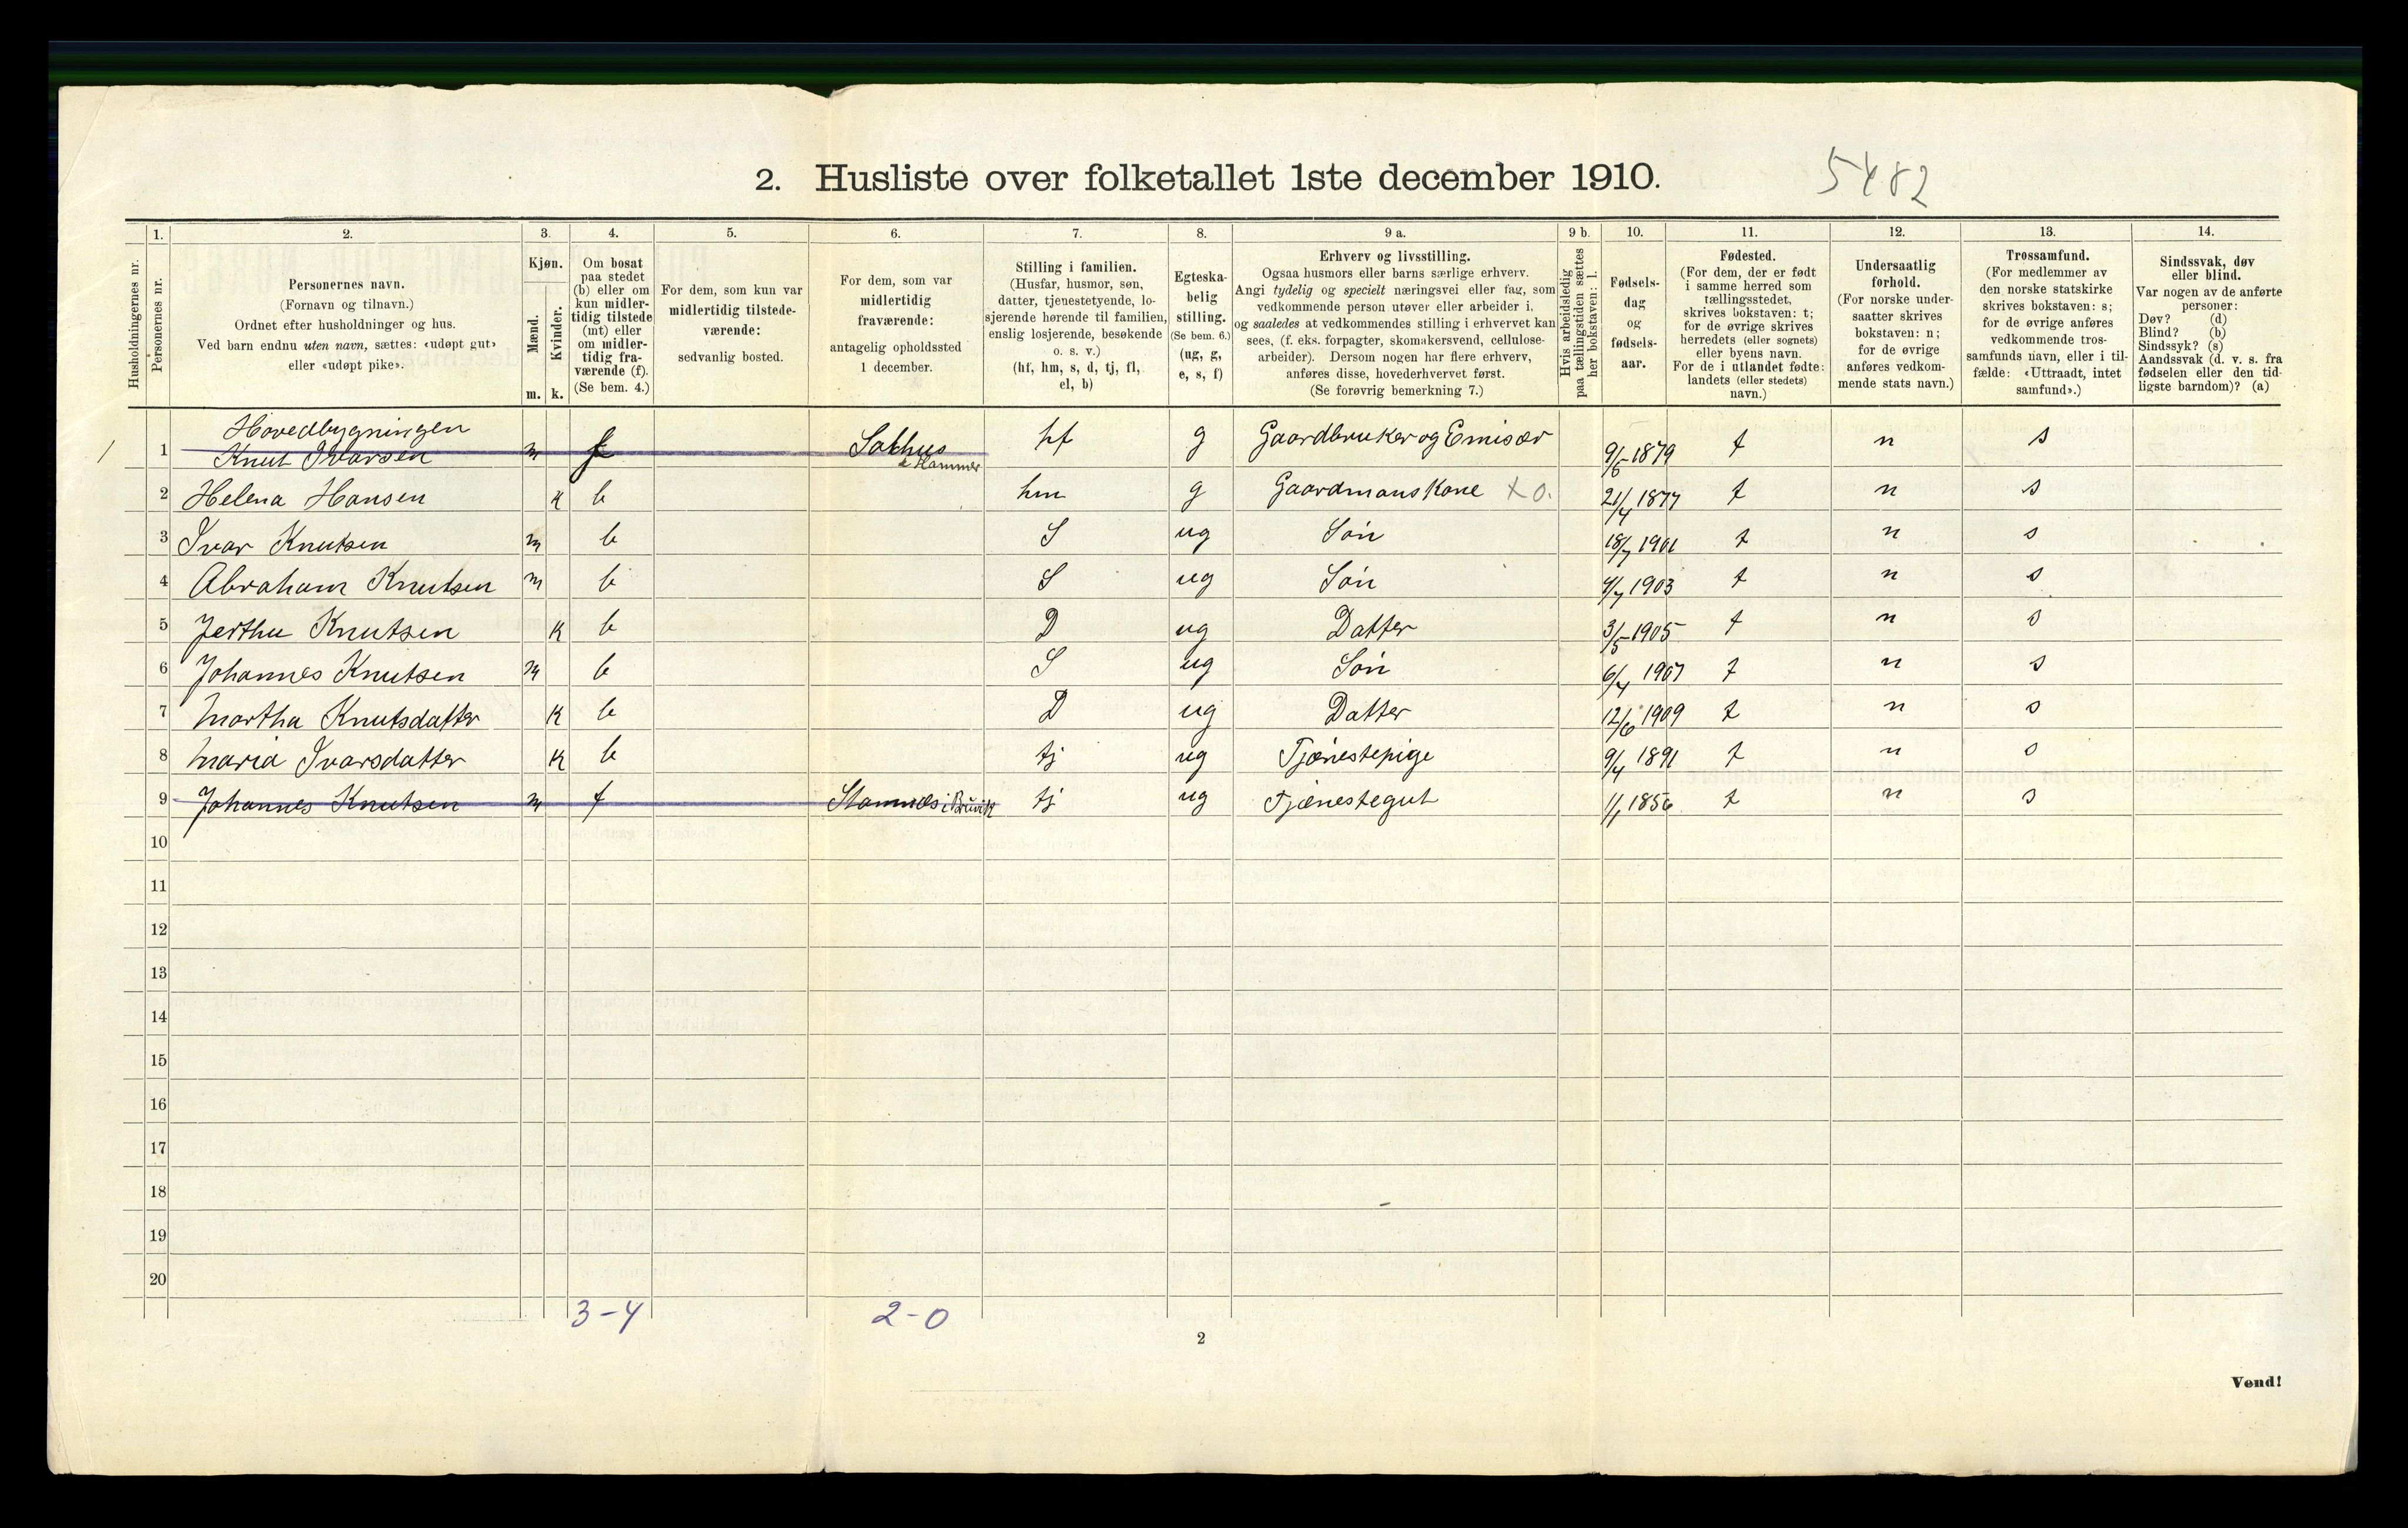 2. Husliste over folketallet 1ste december 1910.
5482
Husholdningernes nr.
1.
Personernes nr.
2.
Personernes navn.
(Fornavn og tilnavn.)
Ordnet efter husholdninger og hus.
Ved barn endnu uten navn, sættes: «udøpt gut»
eller «udøpt pike».
3.
Kjøn.
Mænd.
Kvinder.
m. k.
4.
Om bosat
paa stedet
(b) eller om
kun midler-
tidig tilstede
(mt) eller
om midler-
tidig fra-
værende (f).
(Se bem. 4.)
5.
For dem, som kun var
midlertidig tilstede-
værende:
sedvanlig bosted.
6.
For dem, som var
midlertidig
fraværende:
antagelig opholdssted
1 december.
7.
Stilling i familien.
(Husfar, husmor, søn,
datter, tjenestetyende, lo-
sjerende hørende til familien,
enslig losjerende, besøkende
o. s. v.)
(hf, hm, s, d, tj, fl,
el, b)
8.
Egteska-
belig
stilling.
(Se bem. 6.)
(ug, g,
e, s, f)
9 a.
Erhverv og livsstilling.
Ogsaa husmors eller barns særlige erhverv.
Angi tydelig og specielt næringsvei eller fag, som
vedkommende person utøver eller arbeider i,
og saaledes at vedkommendes stilling i erhvervet kan
sees, (f. eks. forpagter, skomakersvend, cellulose-
arbeider). Dersom nogen har flere erhverv,
anføres disse, hovederhvervet først.
(Se forøvrig bemerkning 7.)
9 b.
Hvis arbeidsledig
paa tællingstiden sættes
her bokstaven: l.
10.
Fødsels-
dag
og
fødsels-
aar.
11.
Fødested.
(For dem, der er født
i samme herred som
tællingsstedet,
skrives bokstaven: t;
for de øvrige skrives
herredets (eller sognets)
eller byens navn.
For de i utlandet fødte:
landets (eller stedets)
navn.)
12.
Undersaatlig
forhold.
(For norske under-
saatter skrives
bokstaven: n;
for de øvrige
anføres vedkom-
mende stats navn.)
13.
Trossamfund.
(For medlemmer av
den norske statskirke
skrives bokstaven: s;
for de øvrige anføres
vedkommende tros-
samfunds navn, eller i til-
fælde: «Uttraadt, intet
samfund».)
14.
Sindssvak, døv
eller blind.
Var nogen av de anførte
personer:
Døv? (d)
Blind? (b)
Sindssyk? (s)
Aandssvak (d. v. s. fra
fødselen eller den tid-
ligste barndom)? (a)
Hovedbygningen
1 1 Knut Ivarsen m f hf g Gaardbruker og Emisær 9/5 1879 t n s
Hammer
2 Helena Hansen k b hm g Gaardmans Kone x 0. 21/4 1877 t n s
3 Ivar Knutsen m b S ug Søn 18/7 1901 t n s
4 Abraham Knutsen m b S ug Søn 4/7 1903 t n s
5 Jerthu Knutsen k b D ug Datter 3/5 1905 t n s
6 Johannes Knutsen m b S ug Søn 6/4 1907 t n s
7 Martha Knutsdatter k b D ug Datter 12/6 1909 t n s
8 Maria Ivarsdatter k b tj ug Tjænestepige 9/4 1891 t n s
9 Johannes Knutsen m f Stamnæs i Bruvik tj ug Tjænestegut 1/1 1856 t n s
10
11
12
13
14
15
16
17
18
19
20
3-4 2-0
2
Vend!